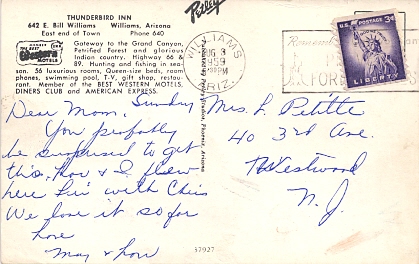 THUNDERBIRD INN
642 E. Bill Williams Williams, Arizona
East end of Town Phone 640
Gateway to the Grand Canyon,
Petrified Forest and glorious
Indian country. Highway 66 &
89. Hunting and fishing in sea-
son. 56 luxurious rooms, Queen-size beds, room
phones, swimming pool, T-V, gift shop, restau-
rant. Member of the BEST WESTERN MOTELS,
DINERS CLUB and AMERICAN EXPRESS.
Best
Western
MOTELS
Petley
WILLIAMS
AUG 3
1959
PM
ARIZ.
U.S. POSTAGE 3¢
LIBERTY
Sunday
Dear Mom,
You probably
be surprised to get
this. Lou & I flew
here
with
We love it so far
Love
May & Lou
Mrs L Petitte
40 3rd Ave.
Westwood
N. J.
Phoenix, Arizona
37927